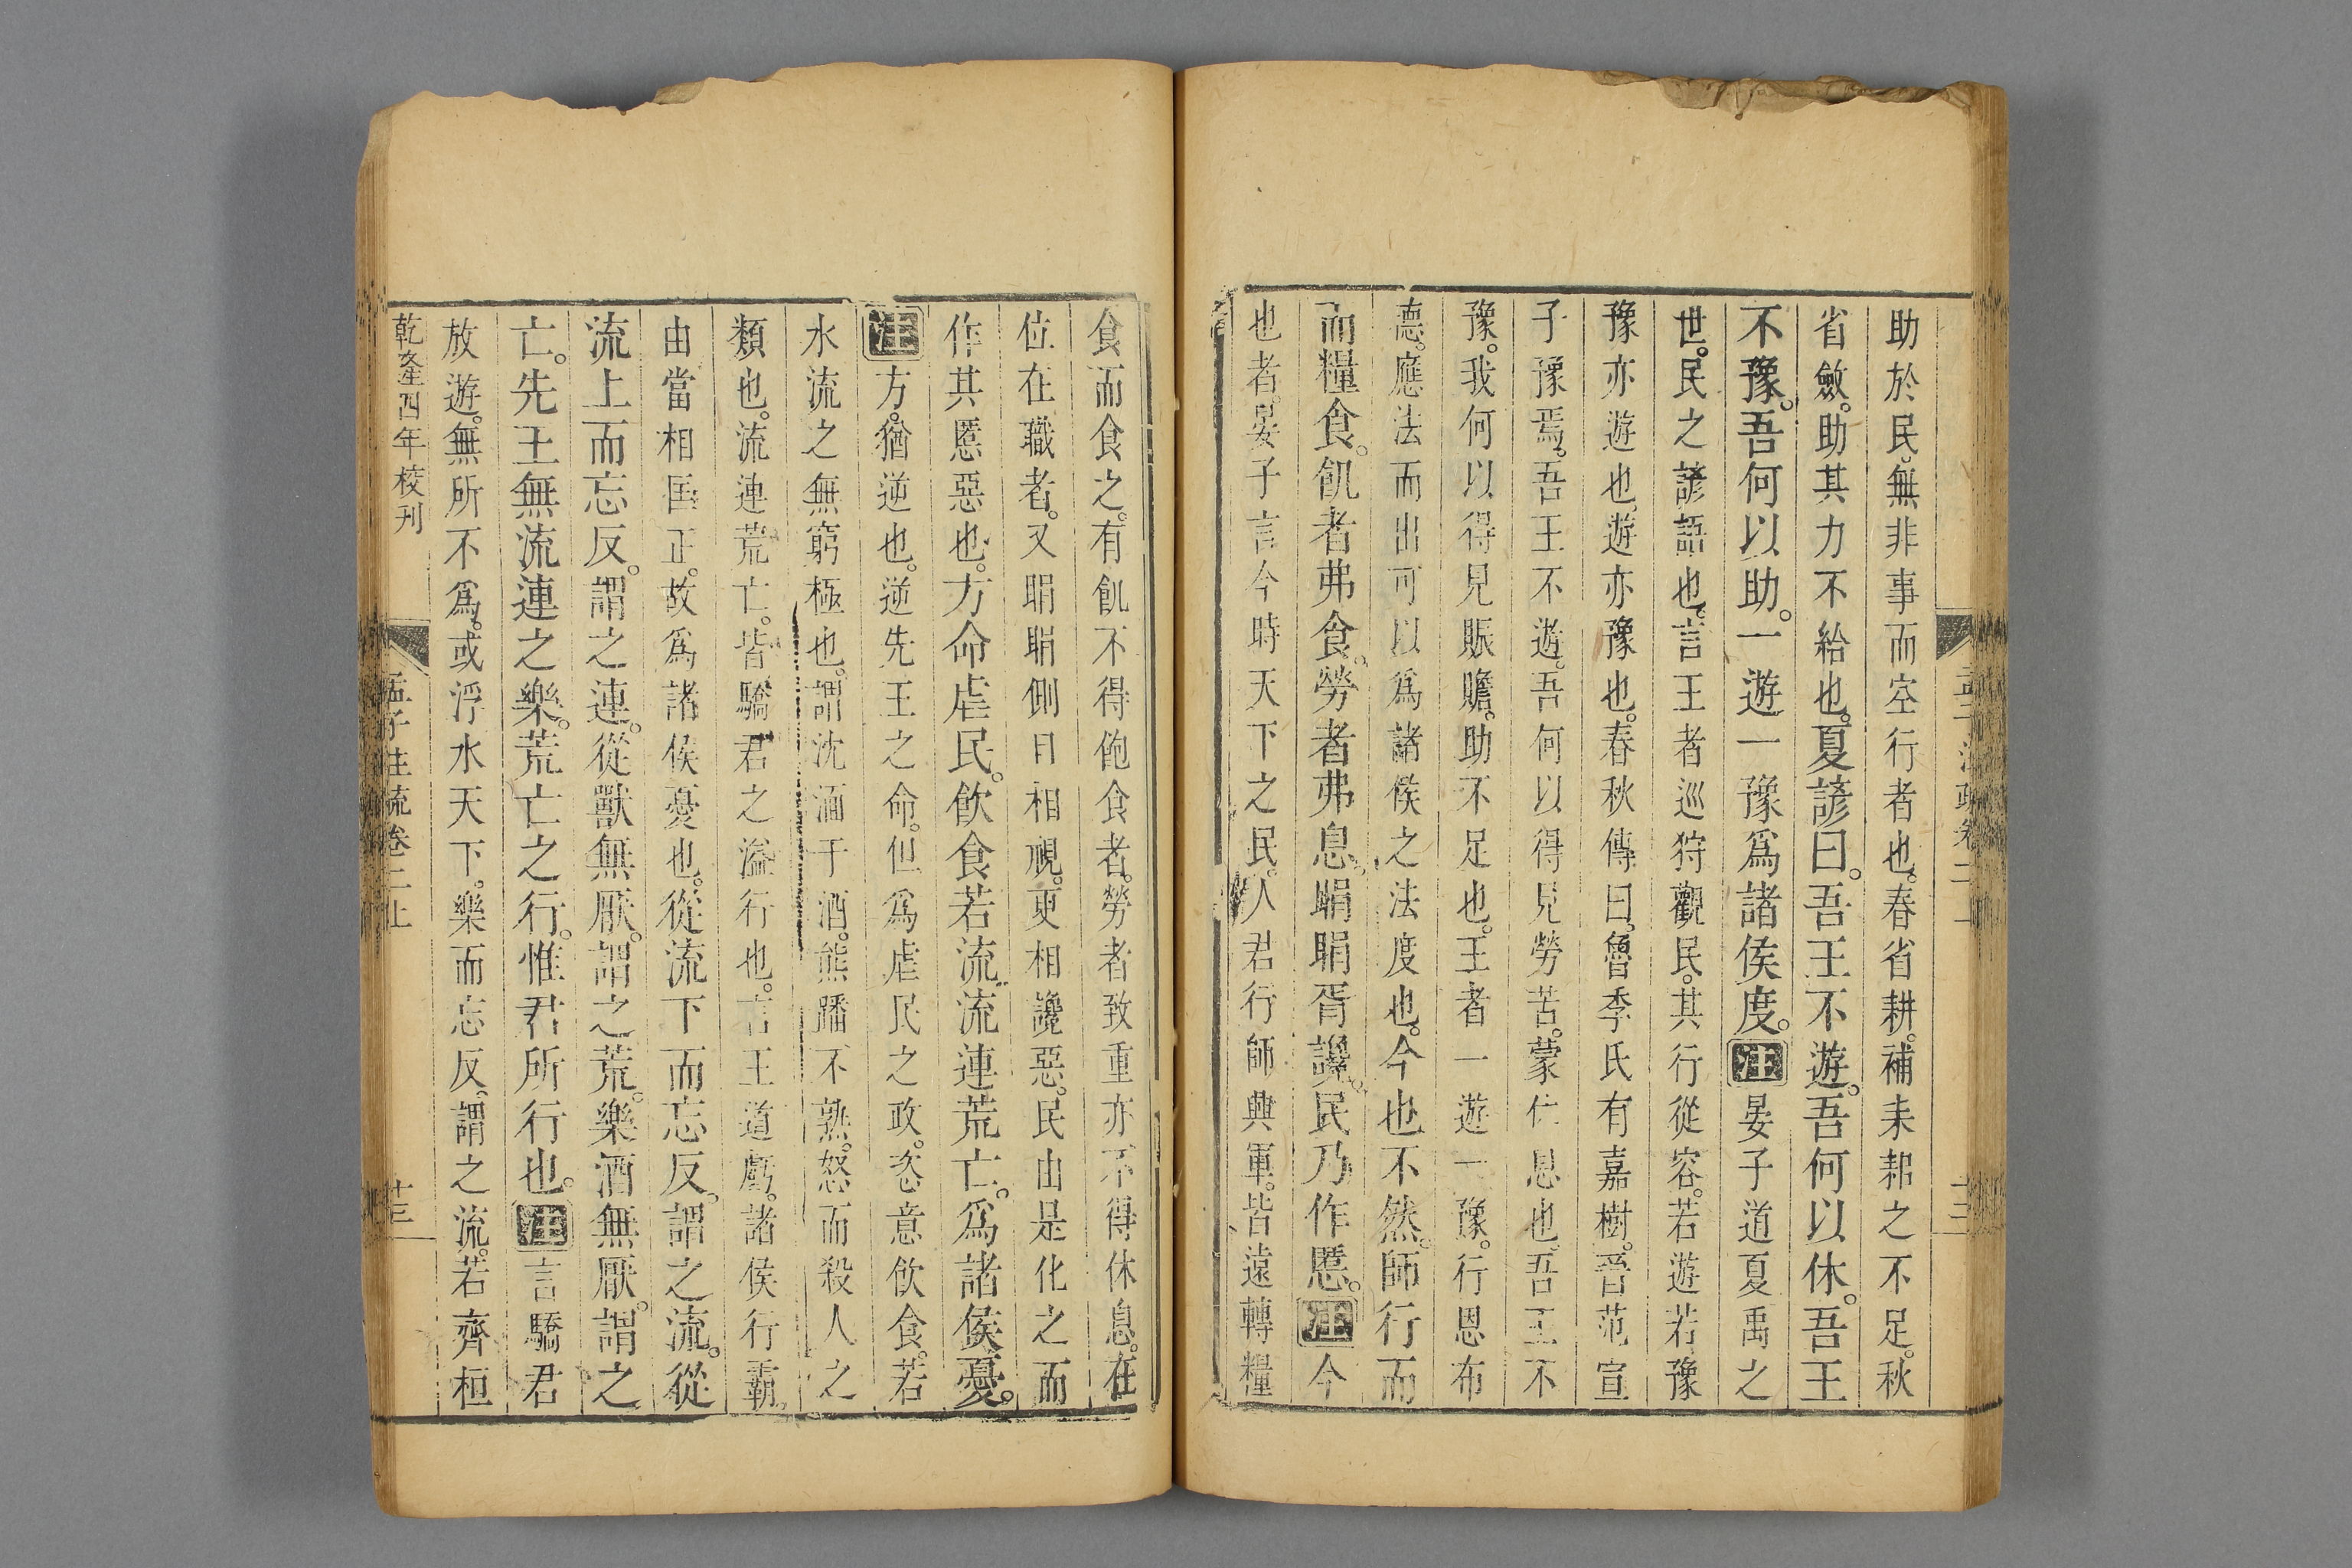 孟子注疏卷二上
十三
助於民。無非事而空行者也。春省耕。補耒耜之不足。秋
省斂。助其力不給也。夏諺曰。吾王不遊。吾何以休。吾王
不豫。吾何以助。一遊一豫爲諸侯度。注晏子道夏禹之
世。民之諺語也。言王者巡狩觀民。其行從容。若遊若豫
豫亦遊也。遊亦豫也。春秋傳曰。魯季氏有嘉樹。晉范宣
子豫焉。吾王不遊。吾何以得見勞苦。蒙休息也。吾王不
豫。我何以得見賑贍。助不足也。王者一遊一豫。行恩布
德。應法而出可以爲諸侯之法度也。今也不然。師行而
而糧食。飢者弗食。勞者弗息。睊睊胥讒。民乃作慝。注今
也者。晏子言今時天下之民。人君行師興軍。皆遠轉糧
食而食之。有飢不得飽食者。勞者致重亦不得休息。在
位在職者。又睊睊側目相視。更相讒惡。民由是化之而
作其慝惡也。方命虐民。飲食若流。流連荒亡。爲諸侯憂。
注方。猶逆也。逆先王之命。但爲虐民之政。恣意飲食。若
水流之無窮極也。謂沈湎于酒。熊蹯不熟。怒而殺人之
類也。流連荒亡。皆驕君之溢行也。言王道虧。諸侯行霸。
由當相匡正。故爲諸侯憂也。從流下而忘反。謂之流。從
流上而忘反。謂之連。從獸無厭。謂之荒。樂酒無厭。謂之
亡。先王無流連之樂。荒亡之行。惟君所行也。注言驕君
放遊。無所不爲。或浮水天下。樂而忘反。謂之流。若齊桓
乾隆四年校刊
孟子注疏卷二上
十三